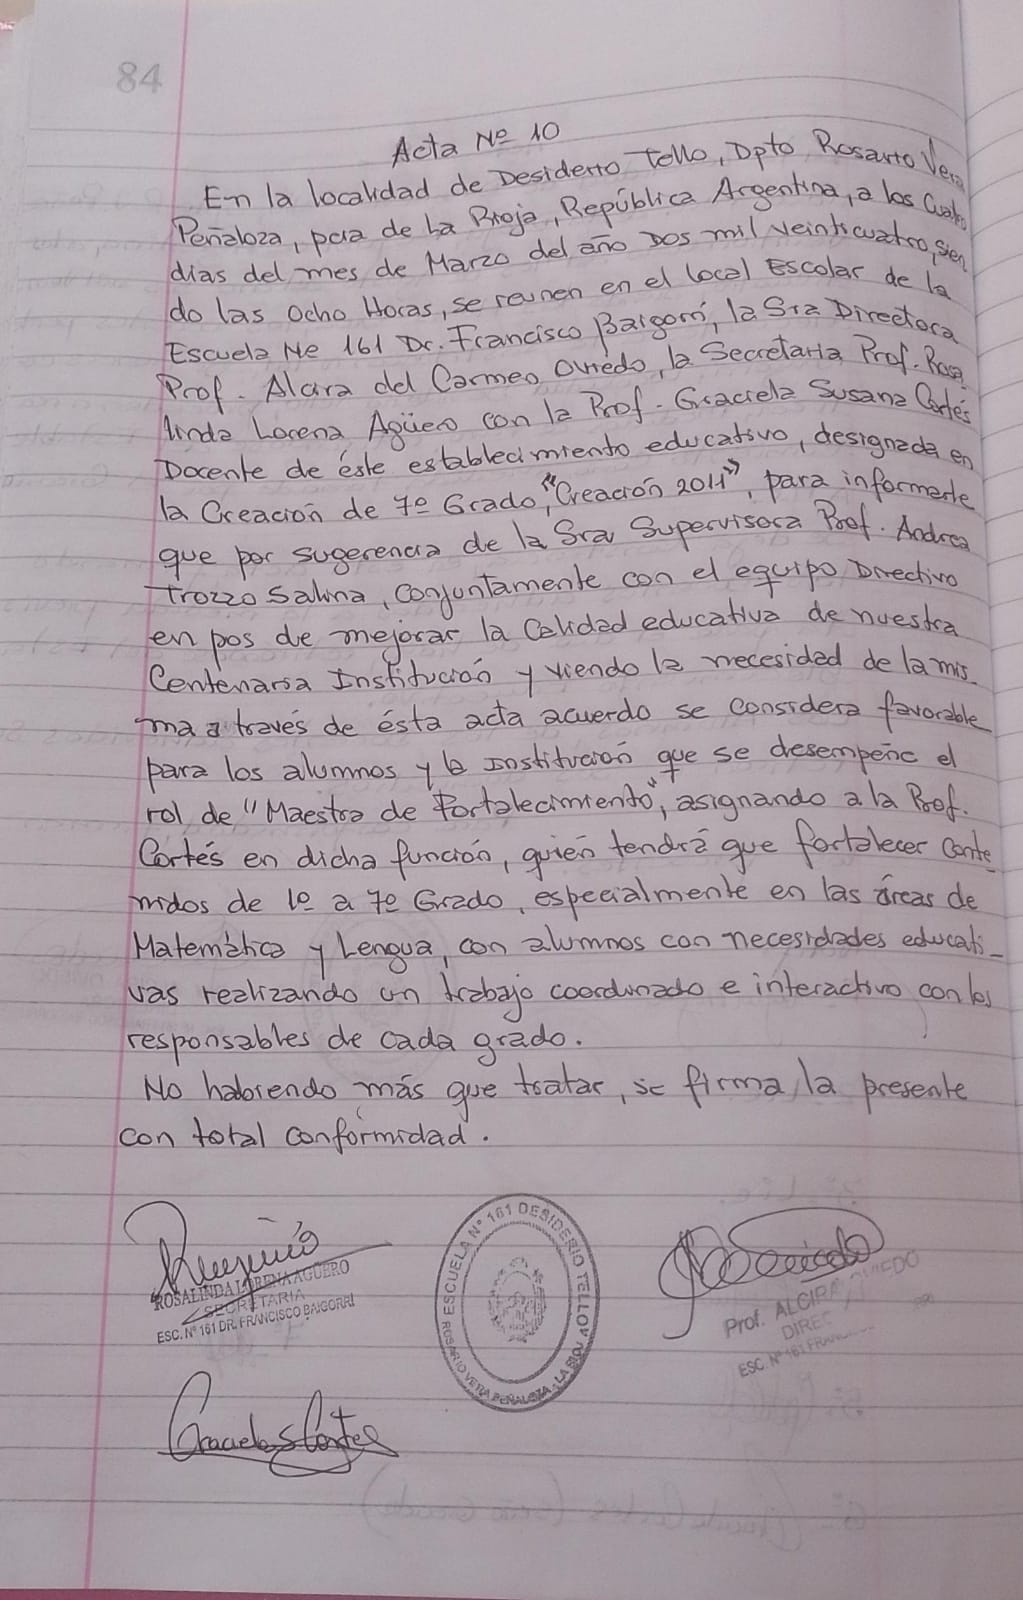 84
Acta Nº 10
En la localidad de Desiderio Tello, Dpto Rosario Vera
Peñaloza, pcia de La Rioja, República Argentina, a los Cuatro
días del mes de Marzo del año Dos mil veinticuatro, sien
do las ocho Horas, se reunen en el local Escolar de la
Escuela Nº 161 Dr. Francisco Baigorrí, la Sra Directora
Prof. Alcira del Carmen Oviedo, la Secretaria Prof. Rosa
linda Lorena Agüero con la Prof. Graciela Susana Cortés
Docente de éste establecimiento educativo, designada en
la Creación de 7º Grado, "Creación 2011", para informarle
que por sugerencia de la Sra Supervisora Prof. Andrea
Trozzo Salina, conjuntamente con el equipo Directivo
en pos de mejorar la Calidad educativa de nuestra
Centenaria Institución y viendo la necesidad de la mis_
ma a través de ésta acta acuerdo se considera favorable
para los alumnos y la Institución que se desempeñe el
rol de "Maestra de Fortalecimiento", asignando a la Prof.
Cortés en dicha función, quién tendrá que fortalecer Conte_
nidos de 1º a 7º Grado, especialmente en las áreas de
Matemática y Lengua, con alumnos con necesidades educati_
vas realizando un trabajo coordinado e interactivo con los
responsables de cada grado.
No habiendo más que tratar, se firma la presente
con total conformidad.
ROSALINDA LORENA AGÜERO
SECRETARIA
ESC. Nº 161 DR. FRANCISCO BAIGORRI
ESCUELA Nº 161 DESIDERIO TELLO
ROSARIO VERA PEÑALOZA - LA RIOJA
Prof. ALCIRA OVIEDO
DIREC
ESC. Nº 161 FRAN
Graciela S Cortés